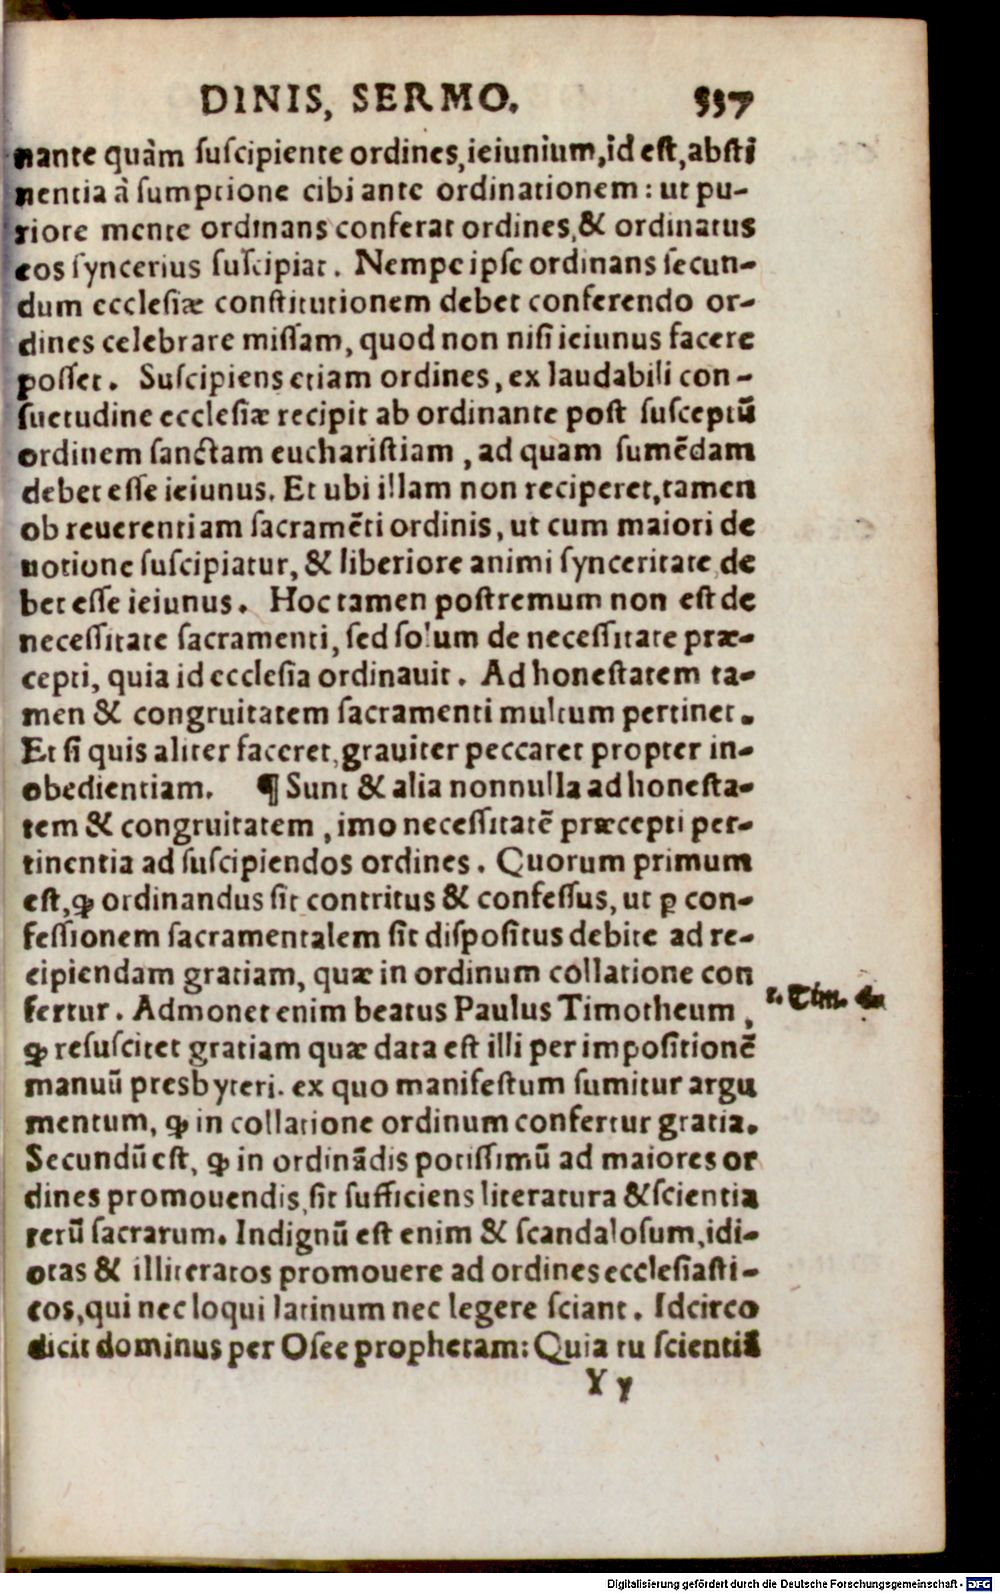 DINIS, SERMO. 337
nante quàm suscipiente ordines, ieiunium, id est, absti
nentia à sumptione cibi ante ordinationem: ut pu-
riore mente ordinans conferat ordines, & ordinatus
eos syncerius suscipiat. Nempe ipse ordinans secun-
dum ecclesiæ constitutionem debet conferendo or-
dines celebrare missam, quod non nisi ieiunus facere
posset. Suscipiens etiam ordines, ex laudabili con-
suetudine ecclesiæ recipit ab ordinante post susceptū
ordinem sanctam eucharistiam, ad quam sumēdam
debet esse ieiunus. Et ubi illam non reciperet, tamen
ob reuerentiam sacramēti ordinis, ut cum maiori de
uotione suscipiatur, & liberiore animi synceritate de
bet esse ieiunus. Hoc tamen postremum non est de
necessitate sacramenti, sed solum de necessitate præ-
cepti, quia id ecclesia ordinauit. Ad honestatem ta-
men & congruitatem sacramenti multum pertinet.
Et si quis aliter faceret, grauiter peccaret propter in-
obedientiam. ¶ Sunt & alia nonnulla ad honesta-
tem & congruitatem, imo necessitatē præcepti per-
tinentia ad suscipiendos ordines. Quorum primum
est, ꝙ ordinandus sit contritus & confessus, ut ꝑ con-
fessionem sacramentalem sit dispositus debite ad re-
cipiendam gratiam, quæ in ordinum collatione con
fertur. Admonet enim beatus Paulus Timotheum,
1. Tim. 4.
ꝙ resuscitet gratiam quæ data est illi per impositionē
manuū presbyteri. ex quo manifestum sumitur argu
mentum, ꝙ in collatione ordinum confertur gratia.
Secundū est, ꝙ in ordinādis potissimū ad maiores or
dines promouendis, sit sufficiens literatura & scientia
rerū sacrarum. Indignū est enim & scandalosum, idi-
otas & illiteratos promouere ad ordines ecclesiasti-
cos, qui nec loqui latinum nec legere sciant. Idcirco
dicit dominus per Osee prophetam: Quia tu scientiā
Y y
Digitalisierung gefördert durch die Deutsche Forschungsgemeinschaft - DFG